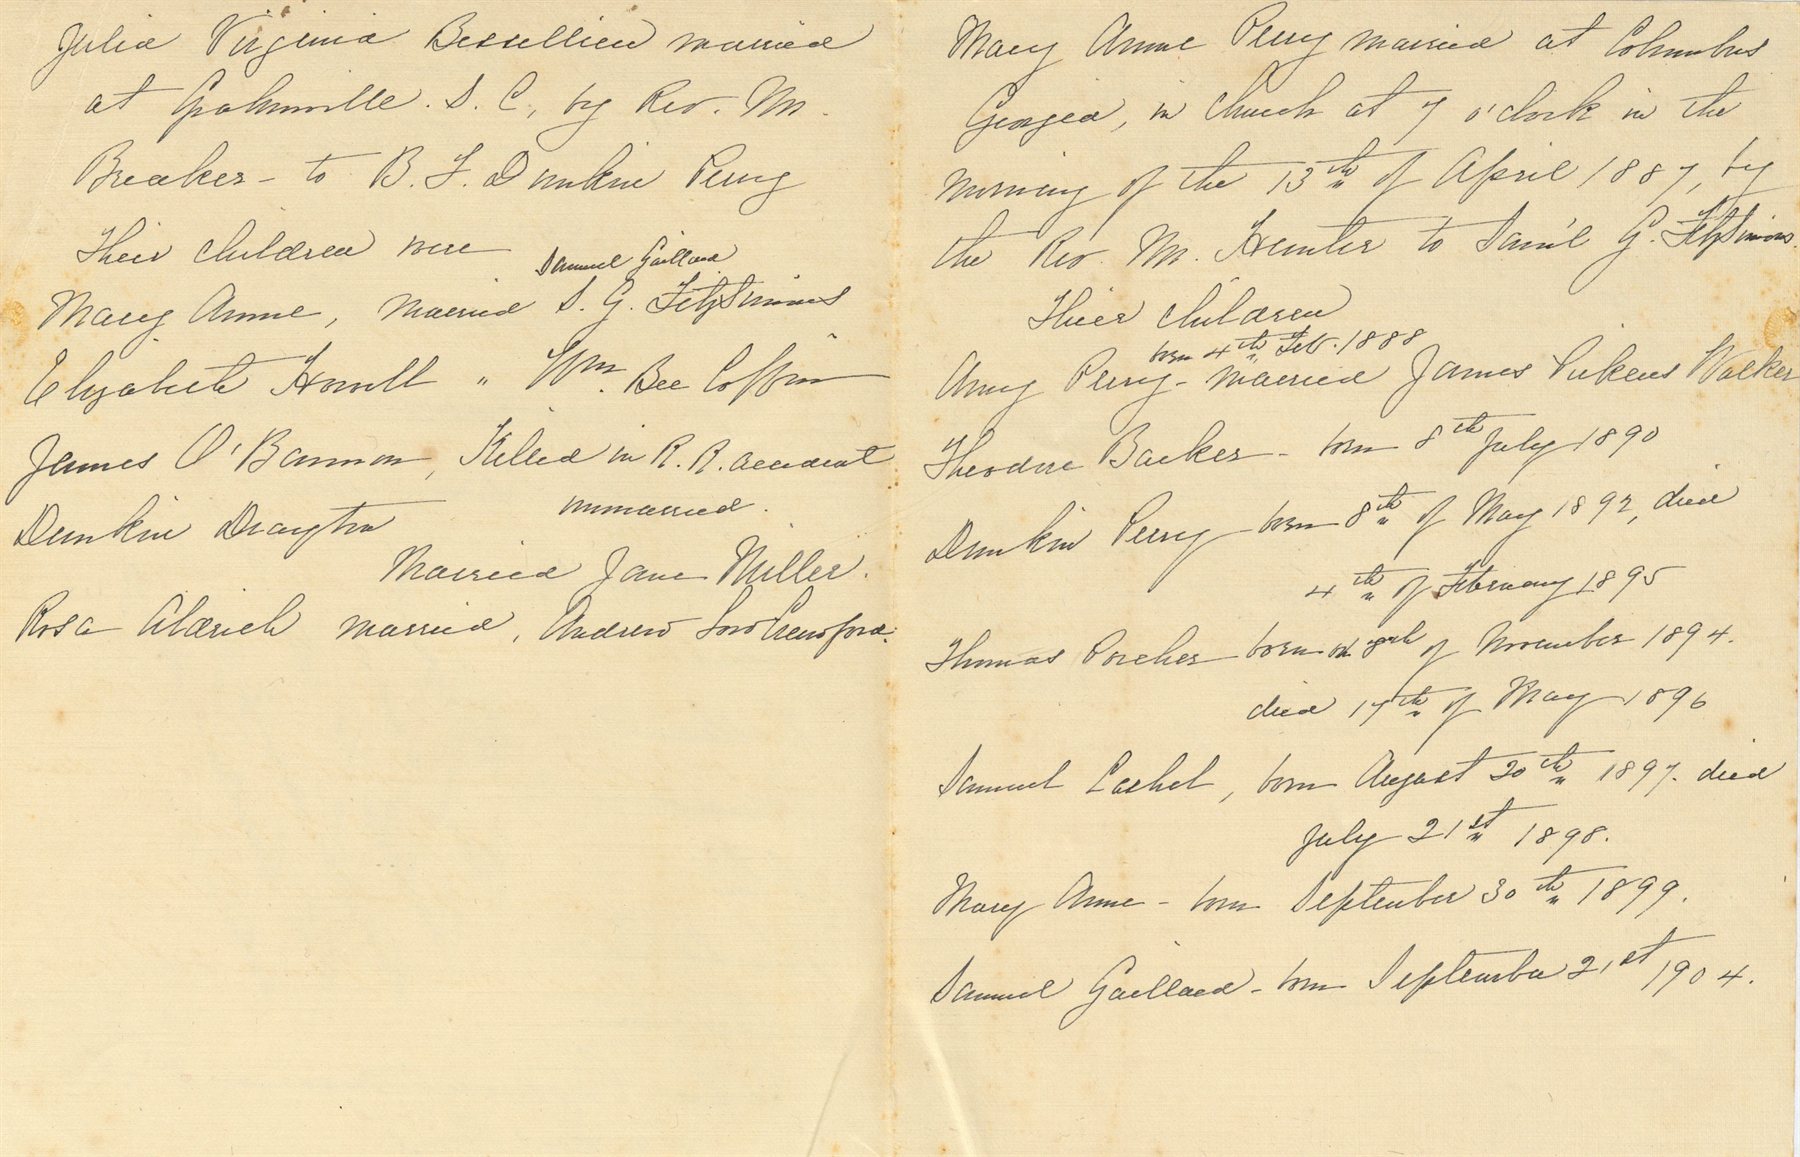 Julia Virginia Bessellieu married
at Grahmville. S. C, by Rev. Mr.
Breaker - to B. F. Dunkin Perry
Their children were
Samuel Gaillard
Mary Anne, married S. G. FitzSimons
Elizabeth Howell " Wm. Bee Coffin
James O'Bannon, Killed in R. R. accident
unmarried.
Dunkin Drayton
Married Jane Miller.
Rosa Aldrich married, Andrew Crawford.
Mary Anne Perry married at Columbus
Georgia, in church at 7 o'clock in the
morning of the 13th of April 1887, by
the Rev. Mr. Hunter to Sam'l G. FitzSimons.
Their children
born 4th Feb. 1888
Amy Perry - married James Pickens Walker
Theodore Barker - born 8th July 1890
Dunkin Perry - born 8th of May 1892, died
4th of February 1895
Thomas Porcher born of November 1894.
died 17th of May 1896
Samuel Cashel, born August 20th 1897. died
July 21st 1898.
Mary Anne - born September 30th 1899.
Samuel Gaillard - born September 21st 1904.